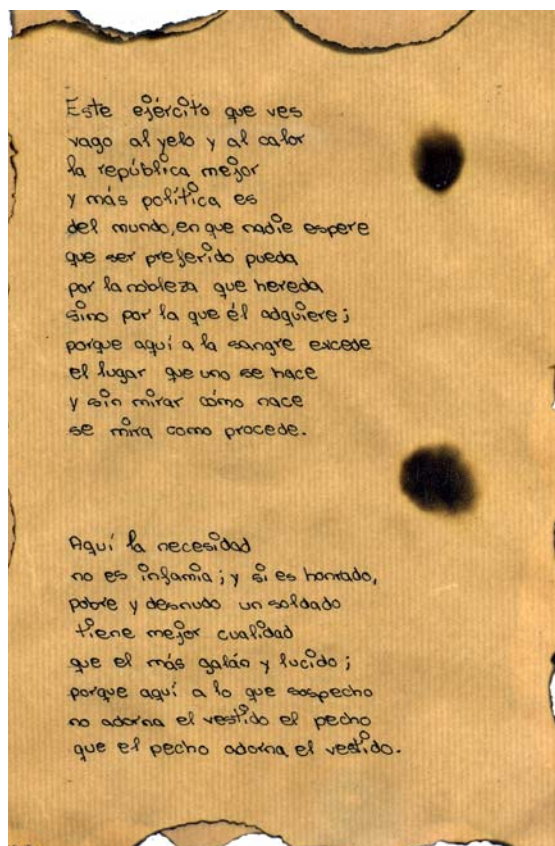 Este ejército que ves
vago al yelo y al calor
la república mejor
y más política es
del mundo, en que nadie espere
que ser preferido pueda
por la nobleza que hereda
sino por la que él adquiere;
porque aquí a la sangre excede
el lugar que uno se hace
y sin mirar cómo nace
se mira como procede.
Aquí la necesidad
no es infamia; y si es honrado,
pobre y desnudo un soldado
tiene mejor cualidad
que el más galán y lucido;
porque aquí a lo que sospecho
no adorna el vestido el pecho
que el pecho adorna el vestido.